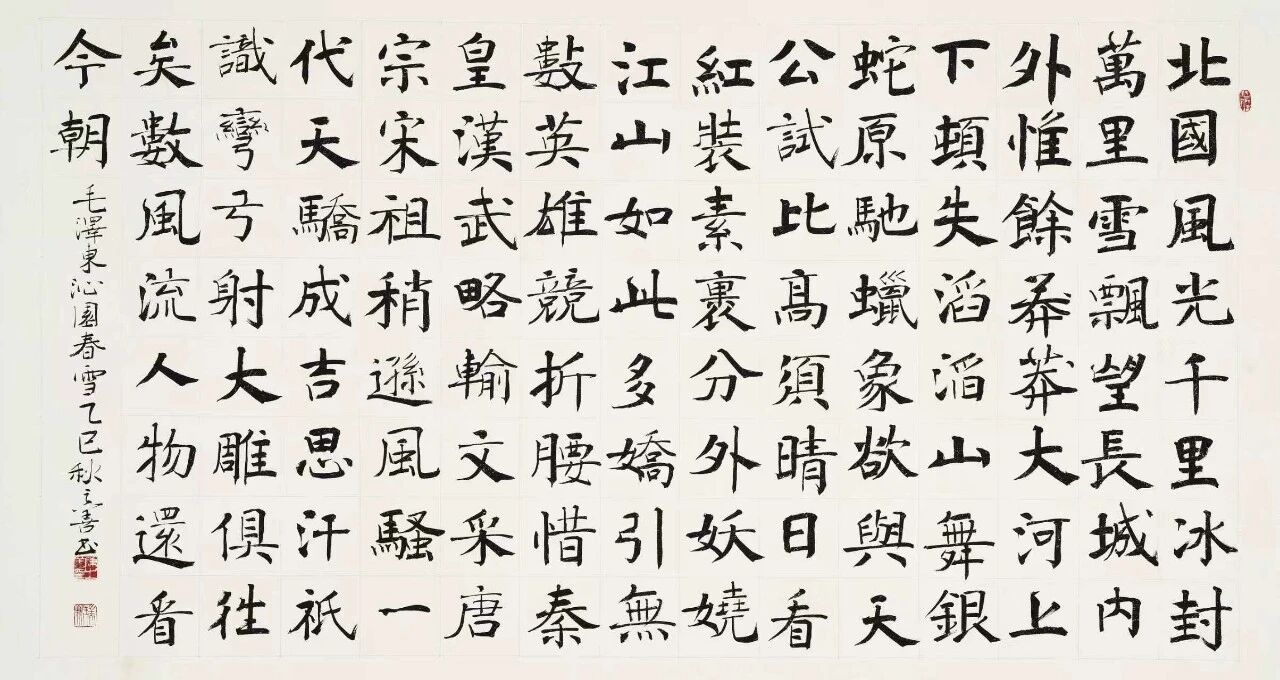 北國風光千里冰封
萬里雪飄望長城内
外惟餘莽莽大河上
下頓失滔滔山舞銀
蛇原馳蠟象欲與天
公試比高須晴日看
紅裝素裹分外妖嬈
江山如此多嬌引無
數英雄競折腰惜秦
皇漢武略輸文采唐
宗宋祖稍遜風騷一
代天驕成吉思汗祇
識彎弓射大雕俱往
矣數風流人物還看
今朝
毛澤東沁園春雪乙巳秋善书